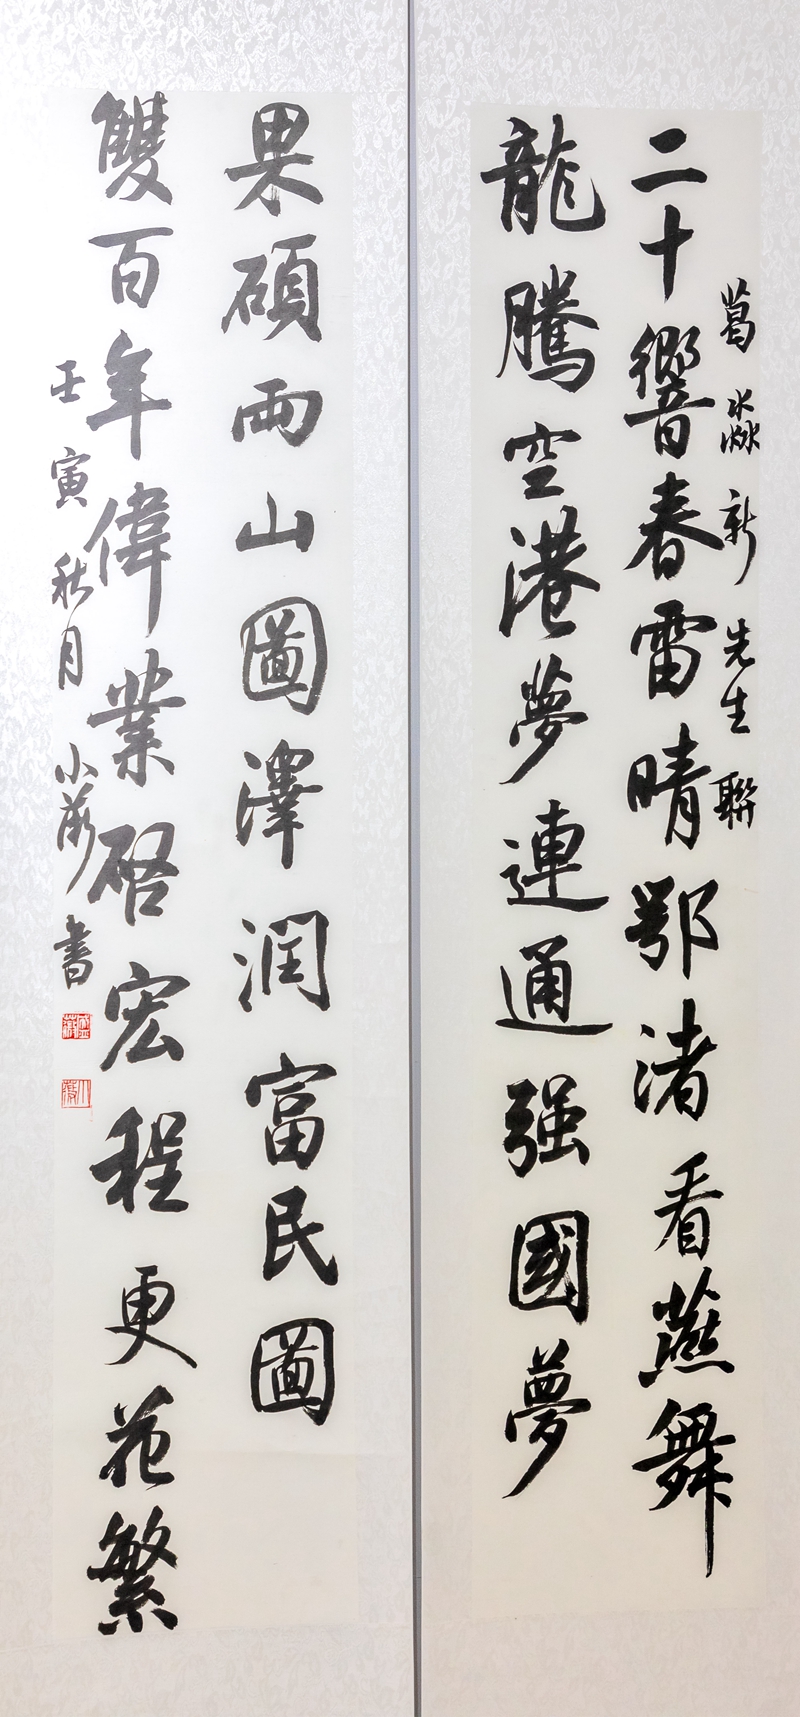 葛淼新先生聯
二十響春雷晴鄂渚看燕舞
龍騰空港夢連通强國夢
雙百年偉業启宏程更花繁
果碩兩山圖澤潤富民圖
壬寅秋月小薇書